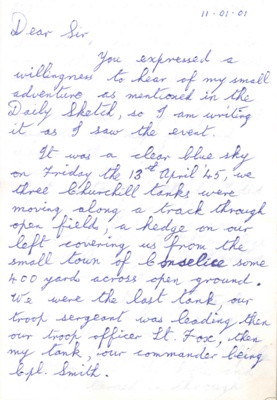 11-01-01
Dear Sir,
You expressed a
willingness to hear of my small
adventure as mentioned in the
Daily Sketch, so I am writing
it as I saw the event.
It was a clear blue sky
on Friday the 13th April 45, we
three Churchill tanks were
moving along a track through
open fields, a hedge on our
left covering us from the
small town of Conselice some
400 yards across open ground.
We were the last tank, our
troop sergeant was leading then
our troop officer Lt. Fox, then
my tank, our commander being
Cpl. Smith.